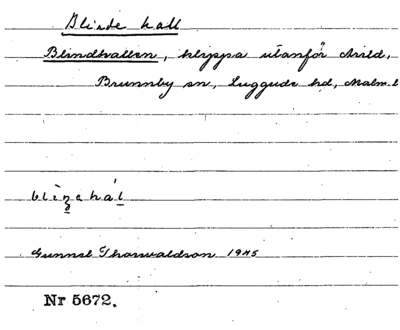 Blinde kall
Blindkallen, klippa utanför Arild,
Brunnby sn, Luggude hd, Malm. l
Gunnel Thorwaldson 1945
Nr 5672.